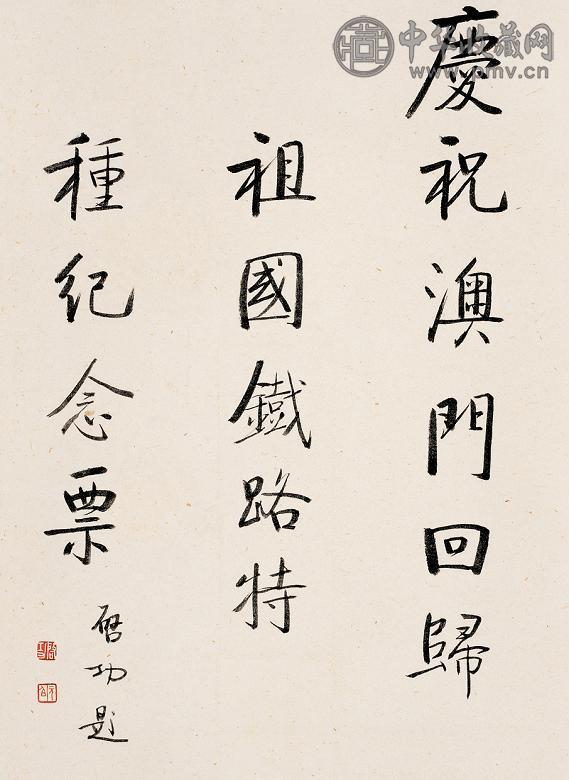 慶祝澳門回歸
祖國鐵路特
種紀念票
啓功題
中华收藏网